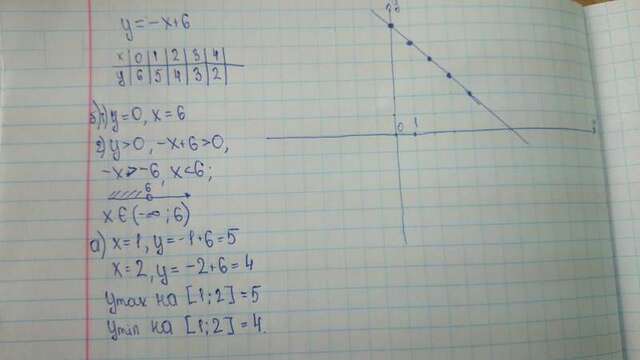 y=-x+6
x|0|1|2|3|4
y|6|5|4|3|2
б)1)y=0, x=6
2)y>0, -x+6>0,
-x>-6, x<6;
6
x∈(-∞;6)
а) x=1, y=-1+6=5
x=2, y=-2+6=4
ymax на [1;2]=5
ymin на [1;2]=4.
0 1